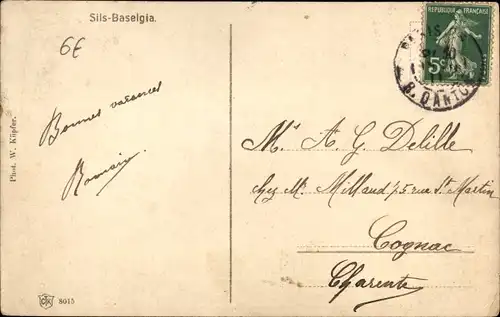 Sils-Baselgia.
6€
REPUBLIQUE FRANÇAISE
5c
R. DANTON
Bonnes vacances
Romain.
Phot. W. Küpfer.
Mr A. G. Delille
chez Mr Millaud 75 rue St Martin
Cognac
Charente
8015